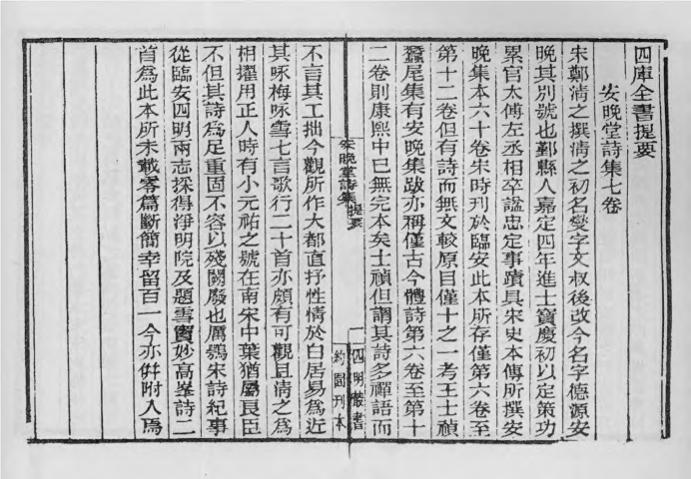 四庫全書提要
安晚堂詩集七卷
宋鄭清之撰清之初名燮字文叔後改今名字德源安
晚其別號也鄞縣人嘉定四年進士寶慶初以定策功
累官太傅左丞相卒諡忠定事蹟具宋史本傳所撰安
晚集本六十卷宋時刊於臨安此本所存僅第六卷至
第十二卷但有詩而無文較原目僅十之一考王士禎
蠶尾集有安晚集跋亦稱僅古今體詩第六卷至第十
二卷則康熙中已無完本矣士禎但謂其詩多禪語而
安晚堂詩集提要
一
四明叢書
約園刊本
不言其工拙今觀所作大都直抒性情於白居易為近
其咏梅咏雪七言歌行二十首亦頗有可觀且清之為
相擢用正人時有小元祐之號在南宋中葉猶屬良臣
不但其詩為足重固不容以殘闕廢也厲鶚宋詩紀事
從臨安四明兩志採得淨明院及題雪竇妙高峯詩二
首為此本所未載零篇斷簡幸留百一今亦併附入焉